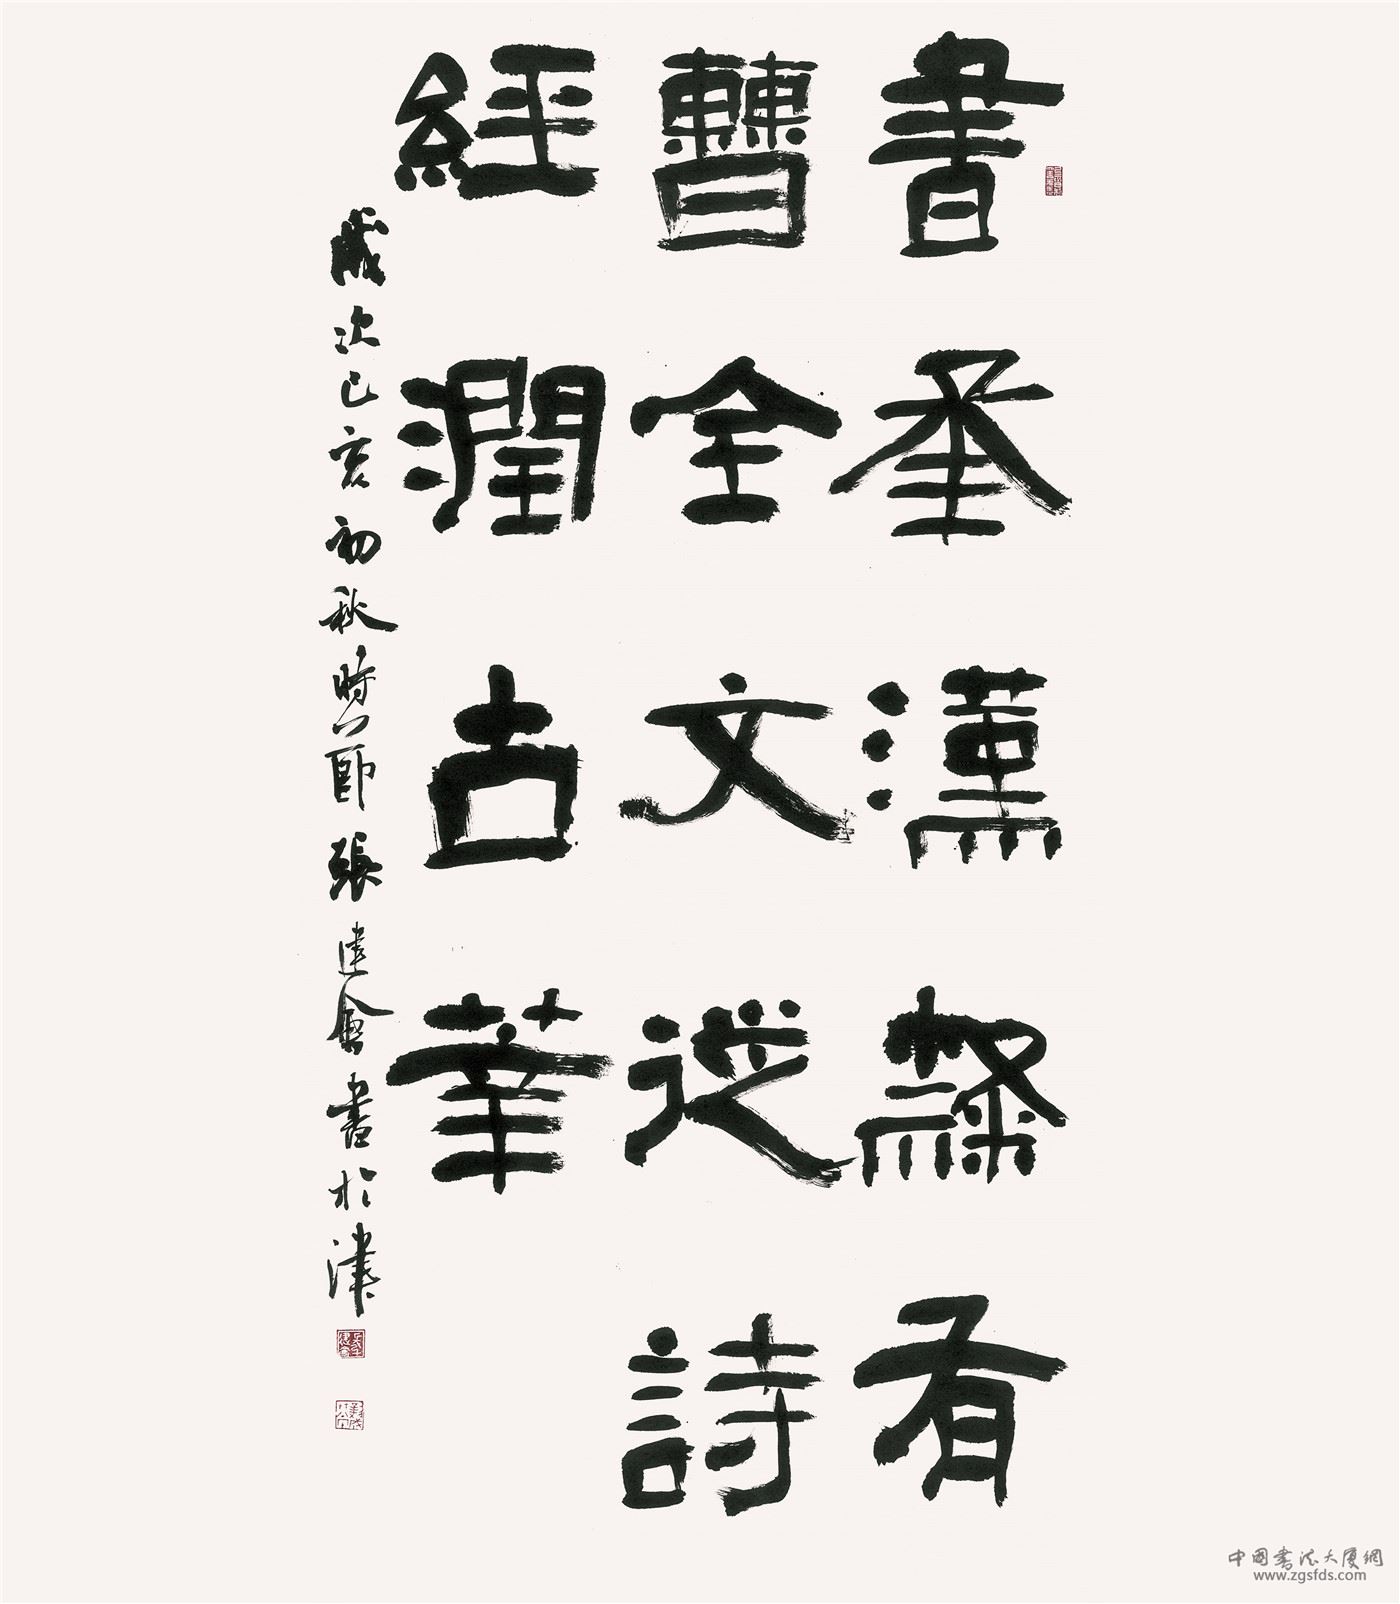 書承漢隸有
曹全文從詩
經潤古華
歲次己亥初秋時節張建會書於津
中國書法大厦網
www.zgsfds.com